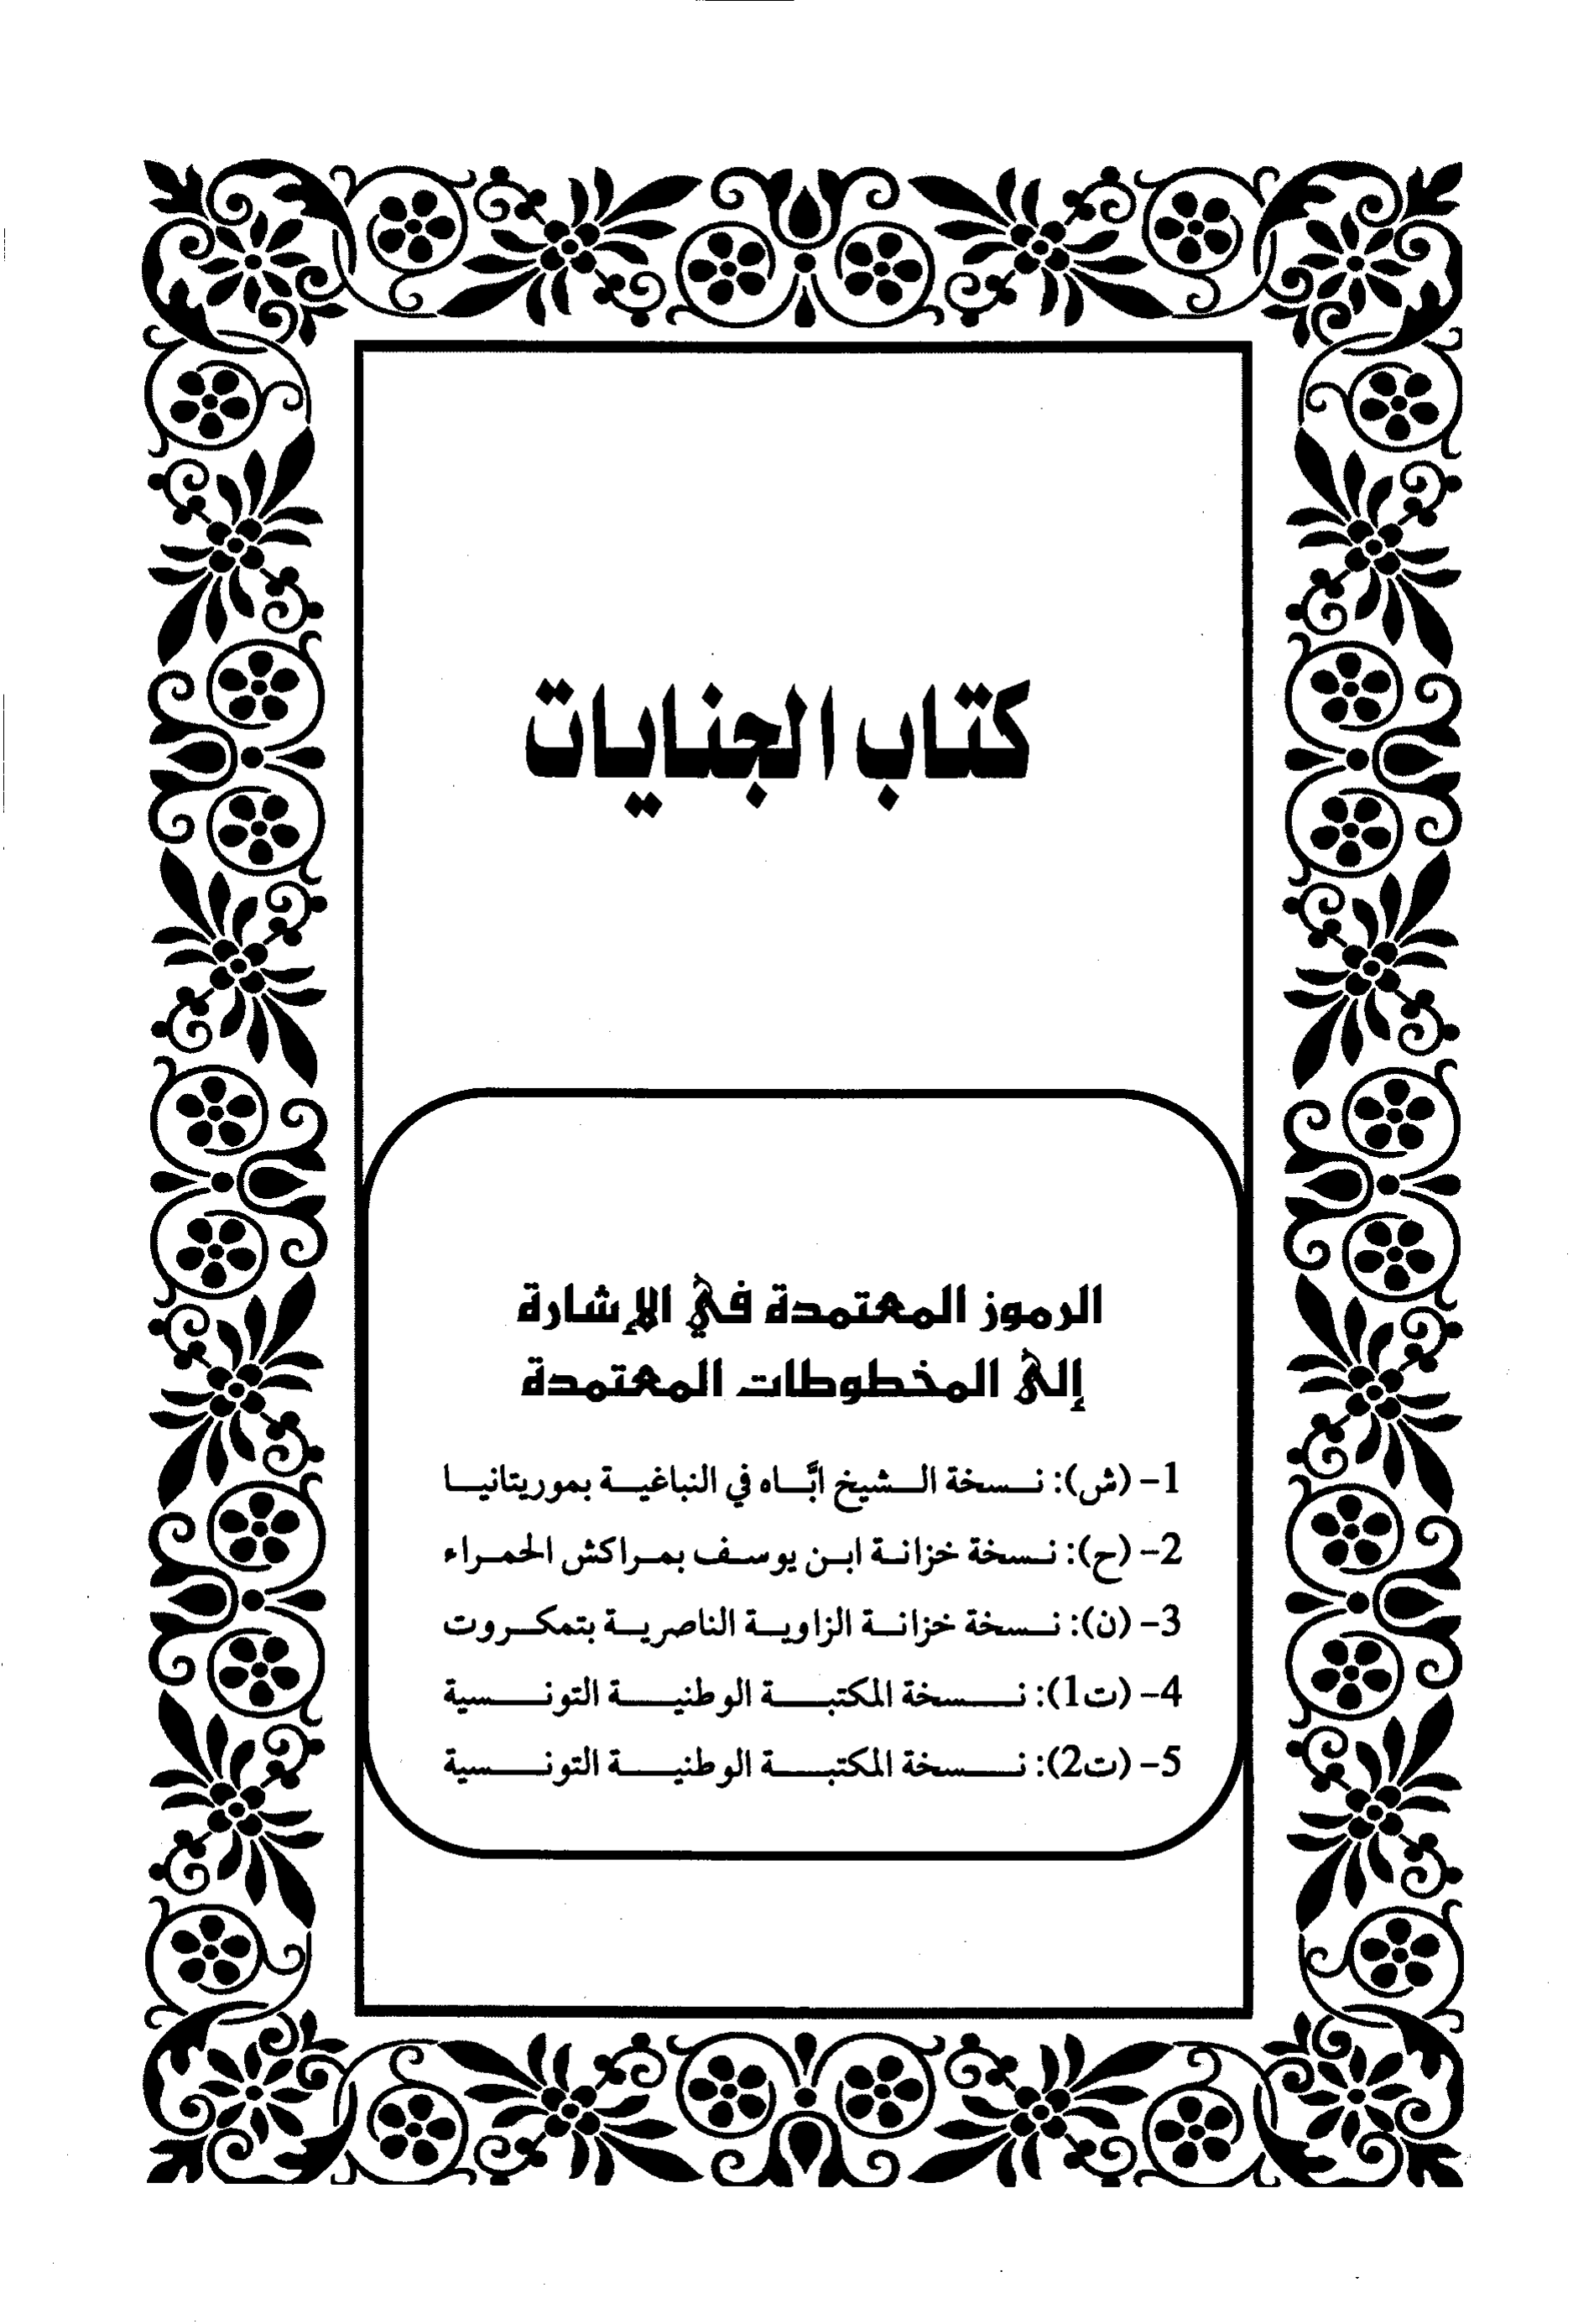 كتاب الجنايات
الرموز المعتمدة في الإشارة
إلى المخطوطات المعتمدة
1- (ش): نسخة الشيخ ابَّاه في النباغية بموريتانيا
2- (ح): نسخة خزانة ابن يوسف بمراكش الحمراء
3- (ن): نسخة خزانة الزاوية الناصرية بتمكروت
4- (ت1): نسخة المكتبة الوطنية التونسية
5- (ت2): نسخة المكتبة الوطنية التونسية